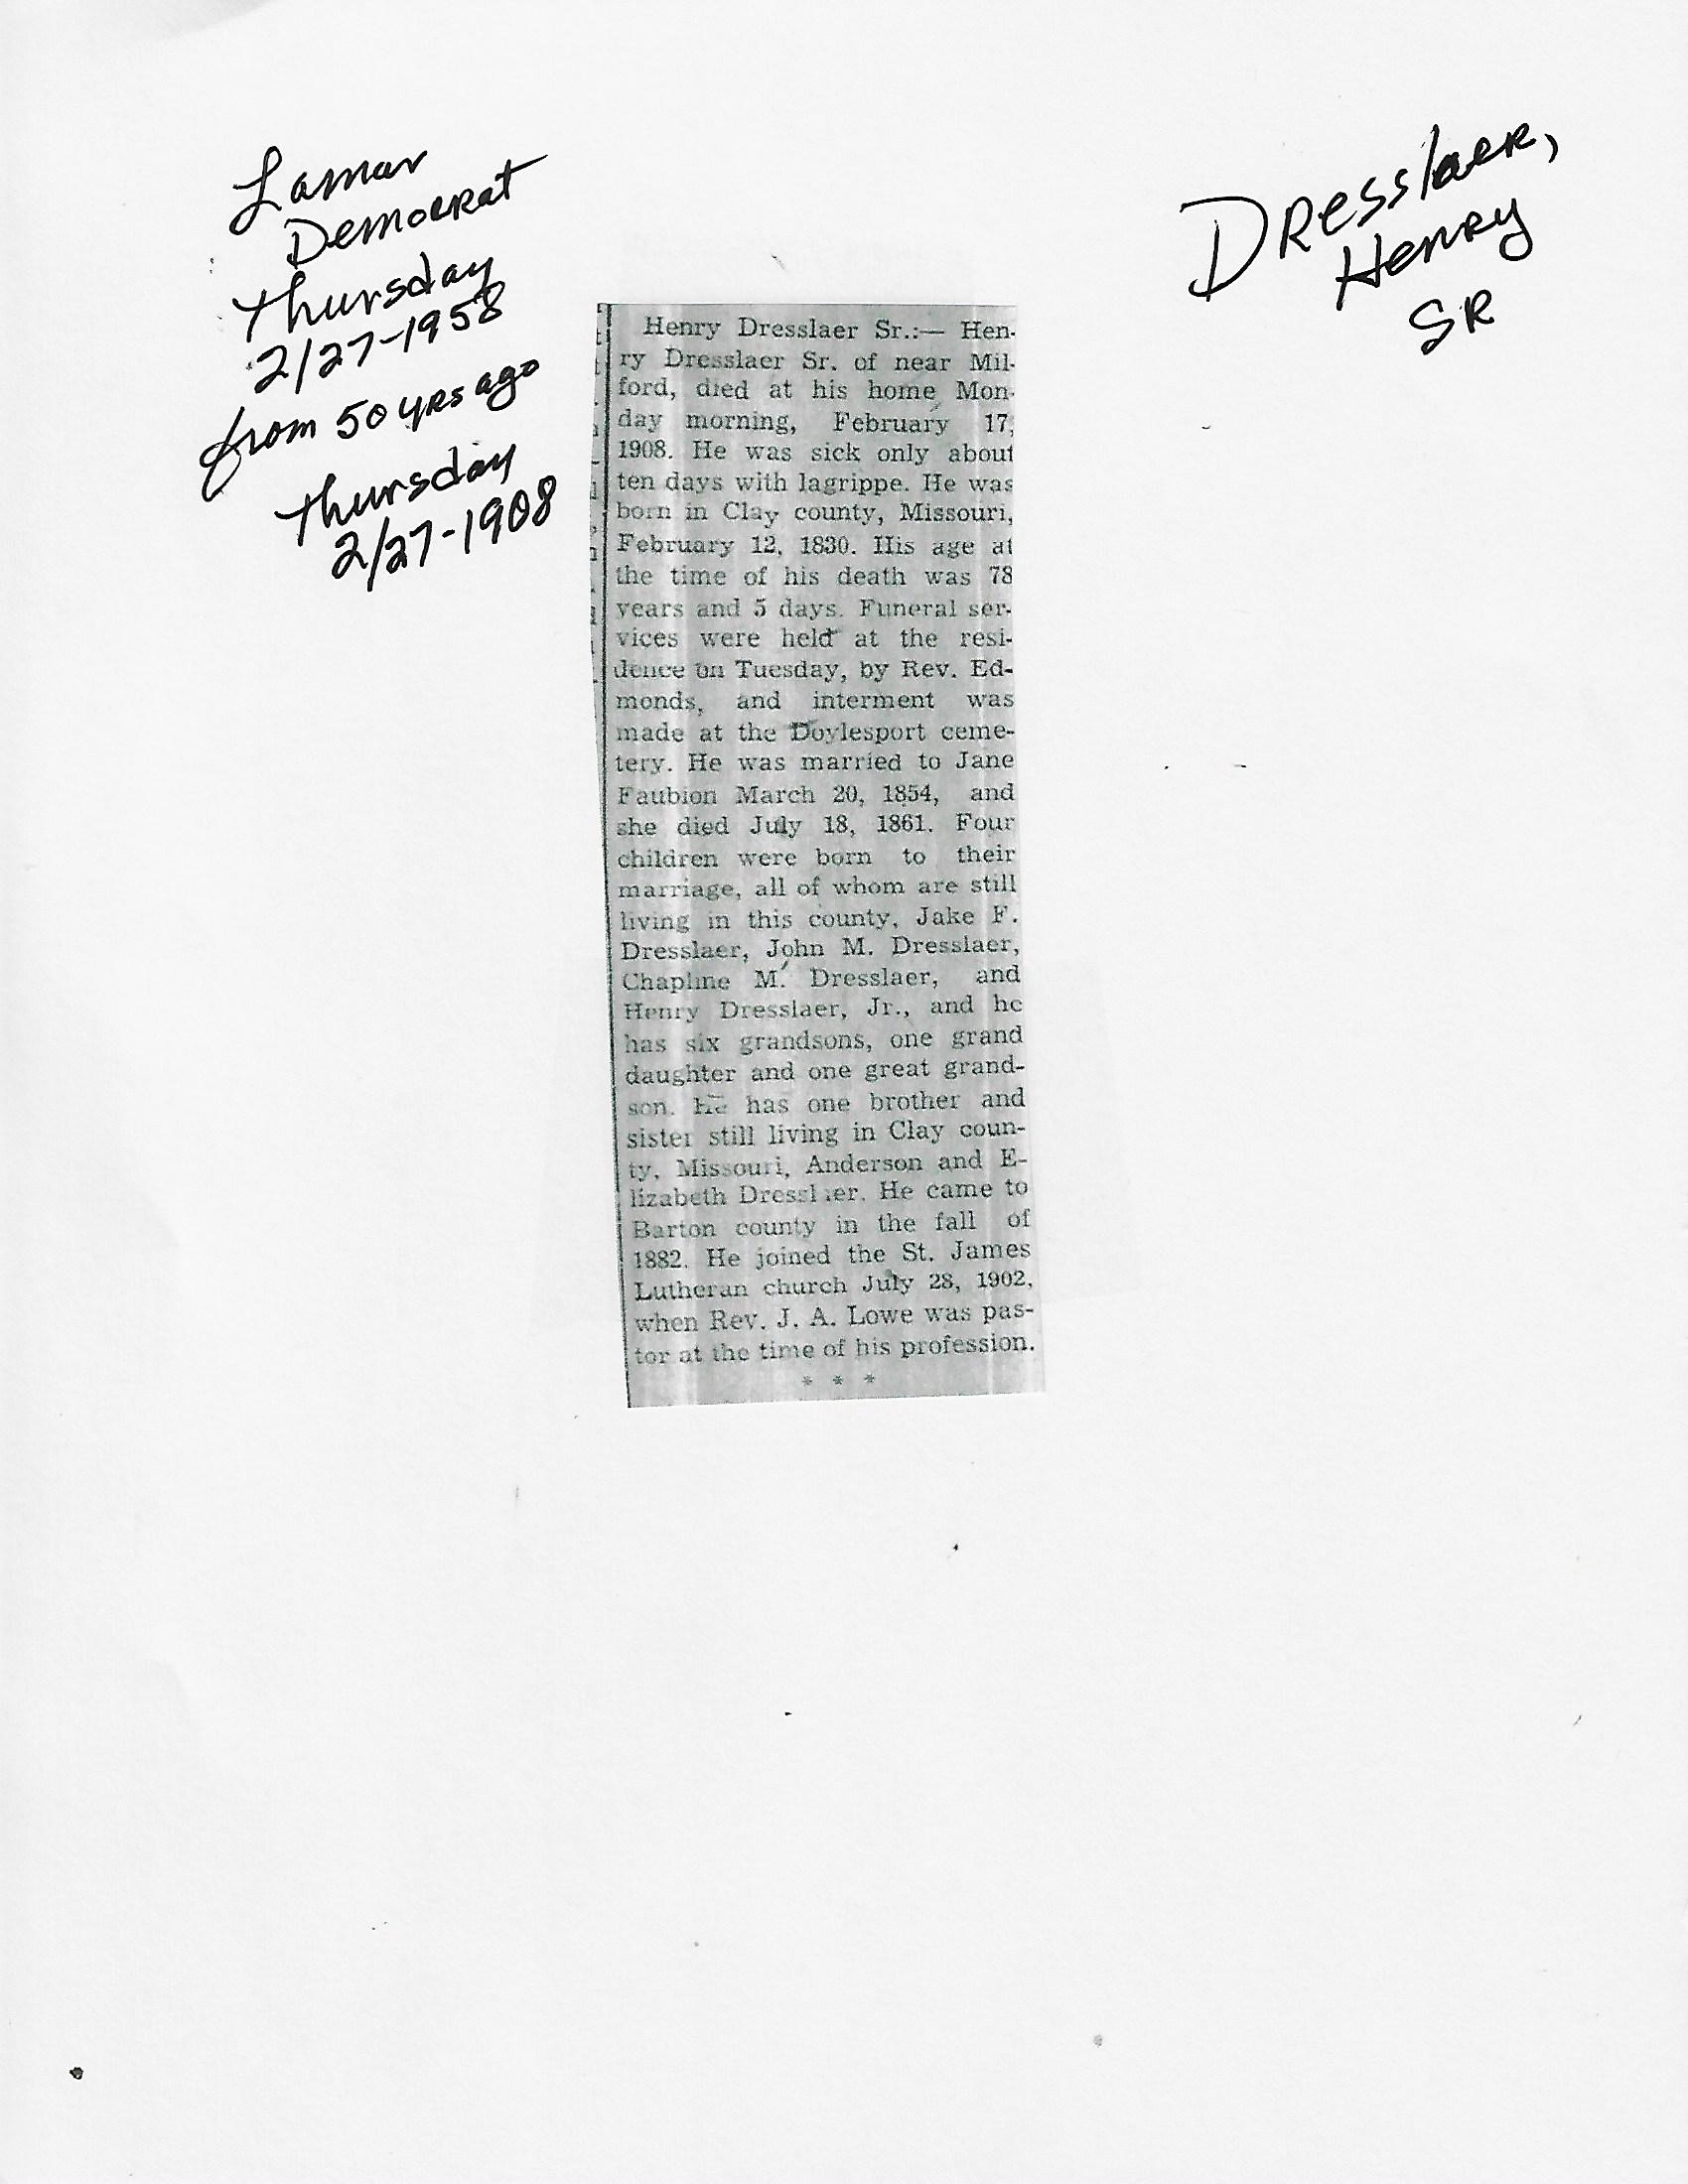 Lamar
Democrat
Thursday
2/27-1958
from 50 yrs ago
Thursday
2/27-1908
Dresslaer,
Henry
SR
Henry Dresslaer Sr.:— Hen-
ry Dresslaer Sr. of near Mil-
ford, died at his home Mon-
day morning, February 17,
1908. He was sick only about
ten days with lagrippe. He was
born in Clay county, Missouri,
February 12, 1830. His age at
the time of his death was 78
years and 5 days. Funeral ser-
vices were held at the resi-
dence on Tuesday, by Rev. Ed-
monds, and interment was
made at the Doylesport ceme-
tery. He was married to Jane
Faubion March 20, 1854, and
she died July 18, 1861. Four
children were born to their
marriage, all of whom are still
living in this county, Jake F.
Dresslaer, John M. Dresslaer,
Chapline M. Dresslaer, and
Henry Dresslaer, Jr., and he
has six grandsons, one grand
daughter and one great grand-
son. He has one brother and
sister still living in Clay coun-
ty, Missouri, Anderson and E-
lizabeth Dresslaer. He came to
Barton county in the fall of
1882. He joined the St. James
Lutheran church July 28, 1902,
when Rev. J. A. Lowe was pas-
tor at the time of his profession.
* * *